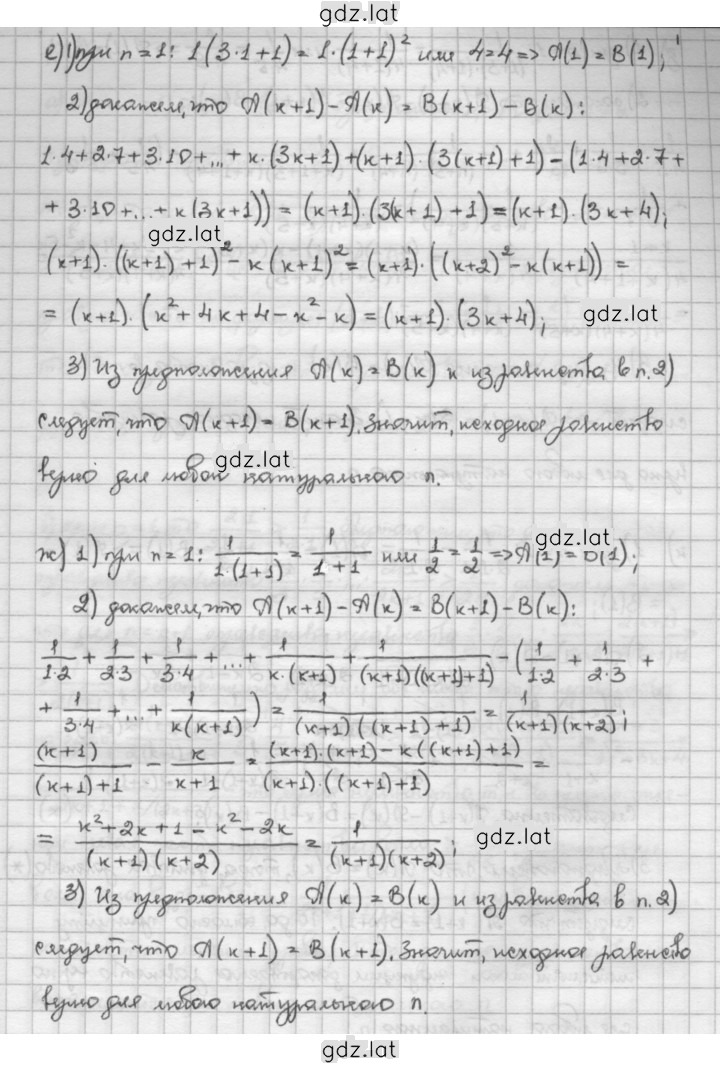 gdz.lat
е) 1) при n = 1: 1(3·1+1) = 1·(1+1)² или 4=4 => A(1) = B(1);
2) докажем, что A(к+1) – A(к) = B(к+1) – B(к):
1·4+2·7+3·10+...+ к·(3к+1)+(к+1)·(3(к+1)+1) – (1·4+2·7+
+3·10+...+ к(3к+1)) = (к+1)·(3(к+1)+1) = (к+1)·(3к+4);
gdz.lat
(к+1)·((к+1)+1)² – к(к+1)² = (к+1)·((к+2)² – к(к+1)) =
= (к+1)·(к²+4к+4–к²–к) = (к+1)·(3к+4);
gdz.lat
3) Из предположения A(к) = B(к) и из равенства в п. 2)
следует, что A(к+1) = B(к+1). Значит, исходное равенство
gdz.lat
верно для любого натурального n.
gdz.lat
ж) 1) при n = 1: 1/(1·(1+1)) = 1/(1+1) или 1/2 = 1/2 => A(1) = B(1);
2) докажем, что A(к+1) – A(к) = B(к+1) – B(к):
1/(1·2) + 1/(2·3) + 1/(3·4) +...+ 1/(к·(к+1)) + 1/((к+1)((к+1)+1)) – (1/(1·2) + 1/(2·3) +
+ 1/(3·4) +...+ 1/(к(к+1))) = 1/((к+1)((к+1)+1)) = 1/((к+1)(к+2));
(к+1)/((к+1)+1) – к/(к+1) = ((к+1)·(к+1) – к((к+1)+1))/((к+1)·((к+1)+1)) =
= (к²+2к+1–к²–2к)/((к+1)(к+2)) = 1/((к+1)(к+2));
gdz.lat
3) Из предположения A(к) = B(к) и из равенства в п. 2)
следует, что A(к+1) = B(к+1). Значит, исходное равенство
верно для любого натурального n.
gdz.lat